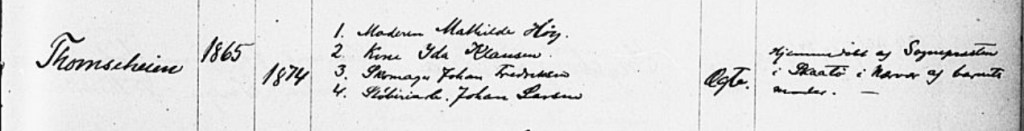 Thomscheien 1865
1874
1. Moderen Mathilde Høy.
2. Kone Ida Klausen.
3. Skomager Johan Fredriksen
4. Johan Larsen
Ægte.
Hjemmedøbt af Sognepræsten
i Skaatø i Nærvær af barnets
moder. —